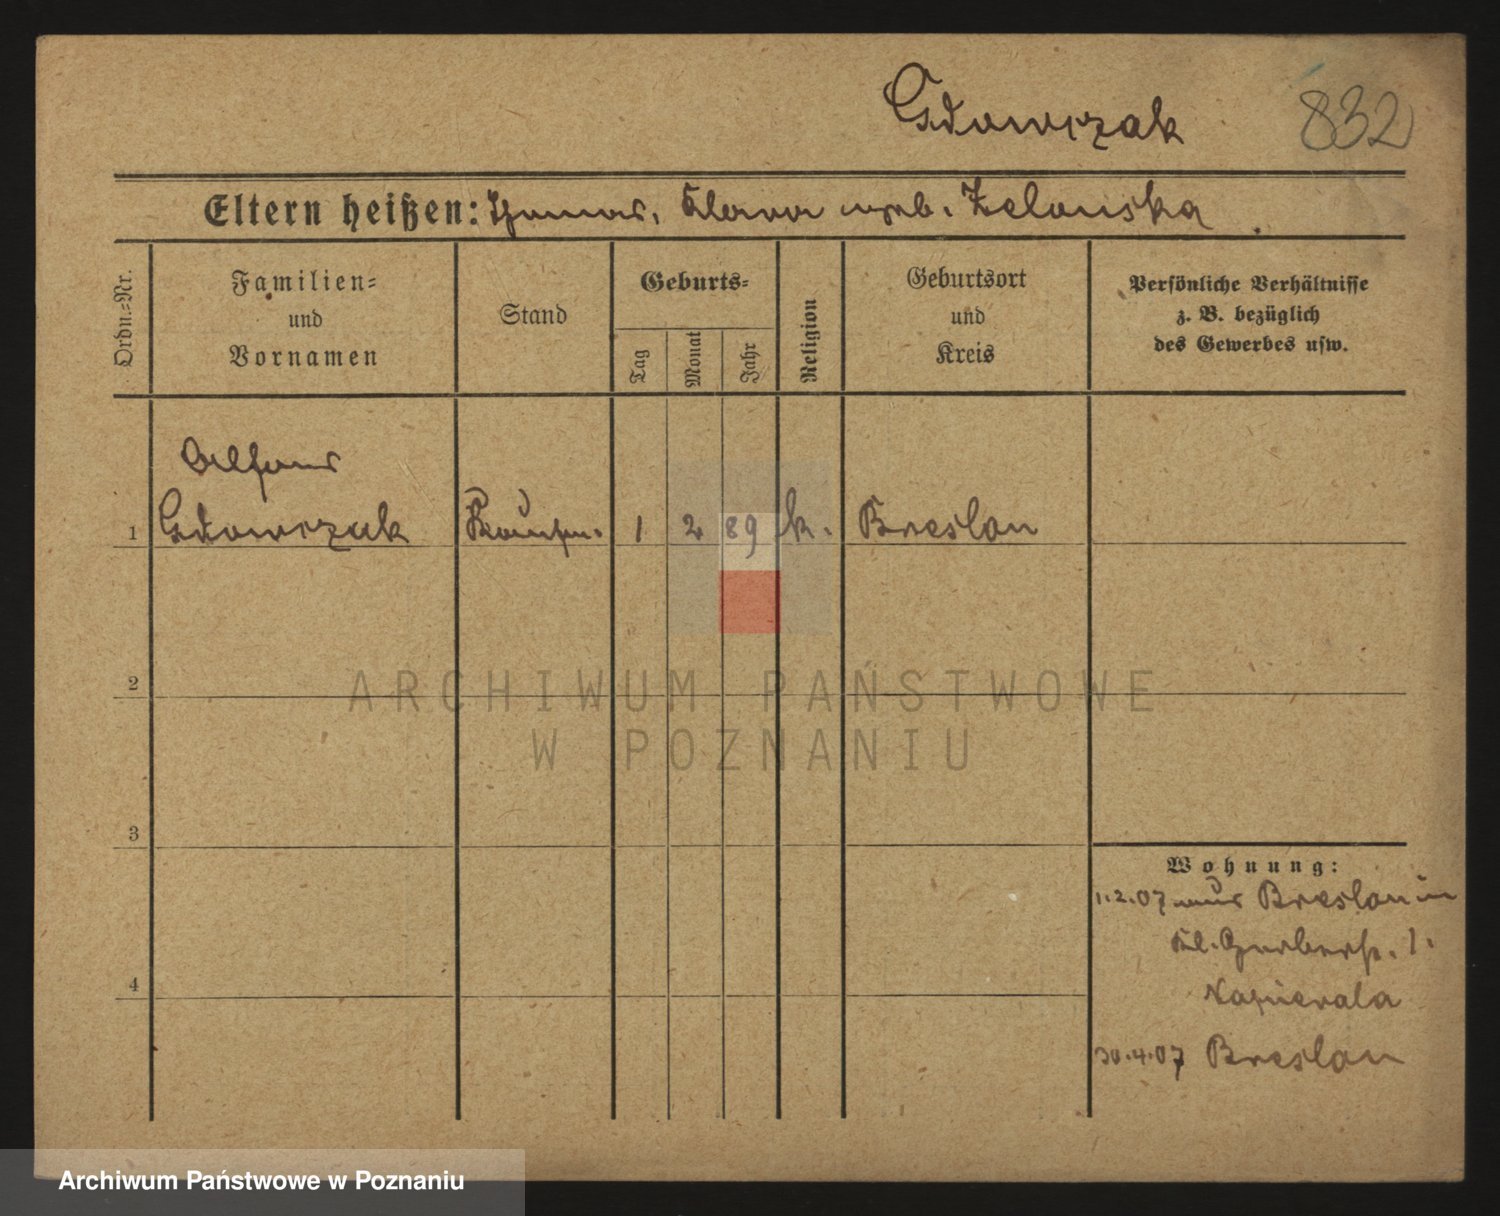 Gdowczak 832
Eltern heißen: Thomas, Klara geb. Zelonska
Ordn.=Nr.
Familien=
und
Vornamen
Stand
Geburts=
Tag
Monat
Jahr
Religion
Geburtsort
und
Kreis
Persönliche Verhältnisse
z. B. bezüglich
des Gewerbes usw.
Alfons
1 Gdowczak Kaufm. 1 2 89 k. Breslau
2
3
4
Wohnung:
1.2.07 aus Breslau in
Kl. Gerberstr. 1.
30.4.07 Breslau
ARCHIWUM PAŃSTWOWE
W POZNANIU
Archiwum Państwowe w Poznaniu